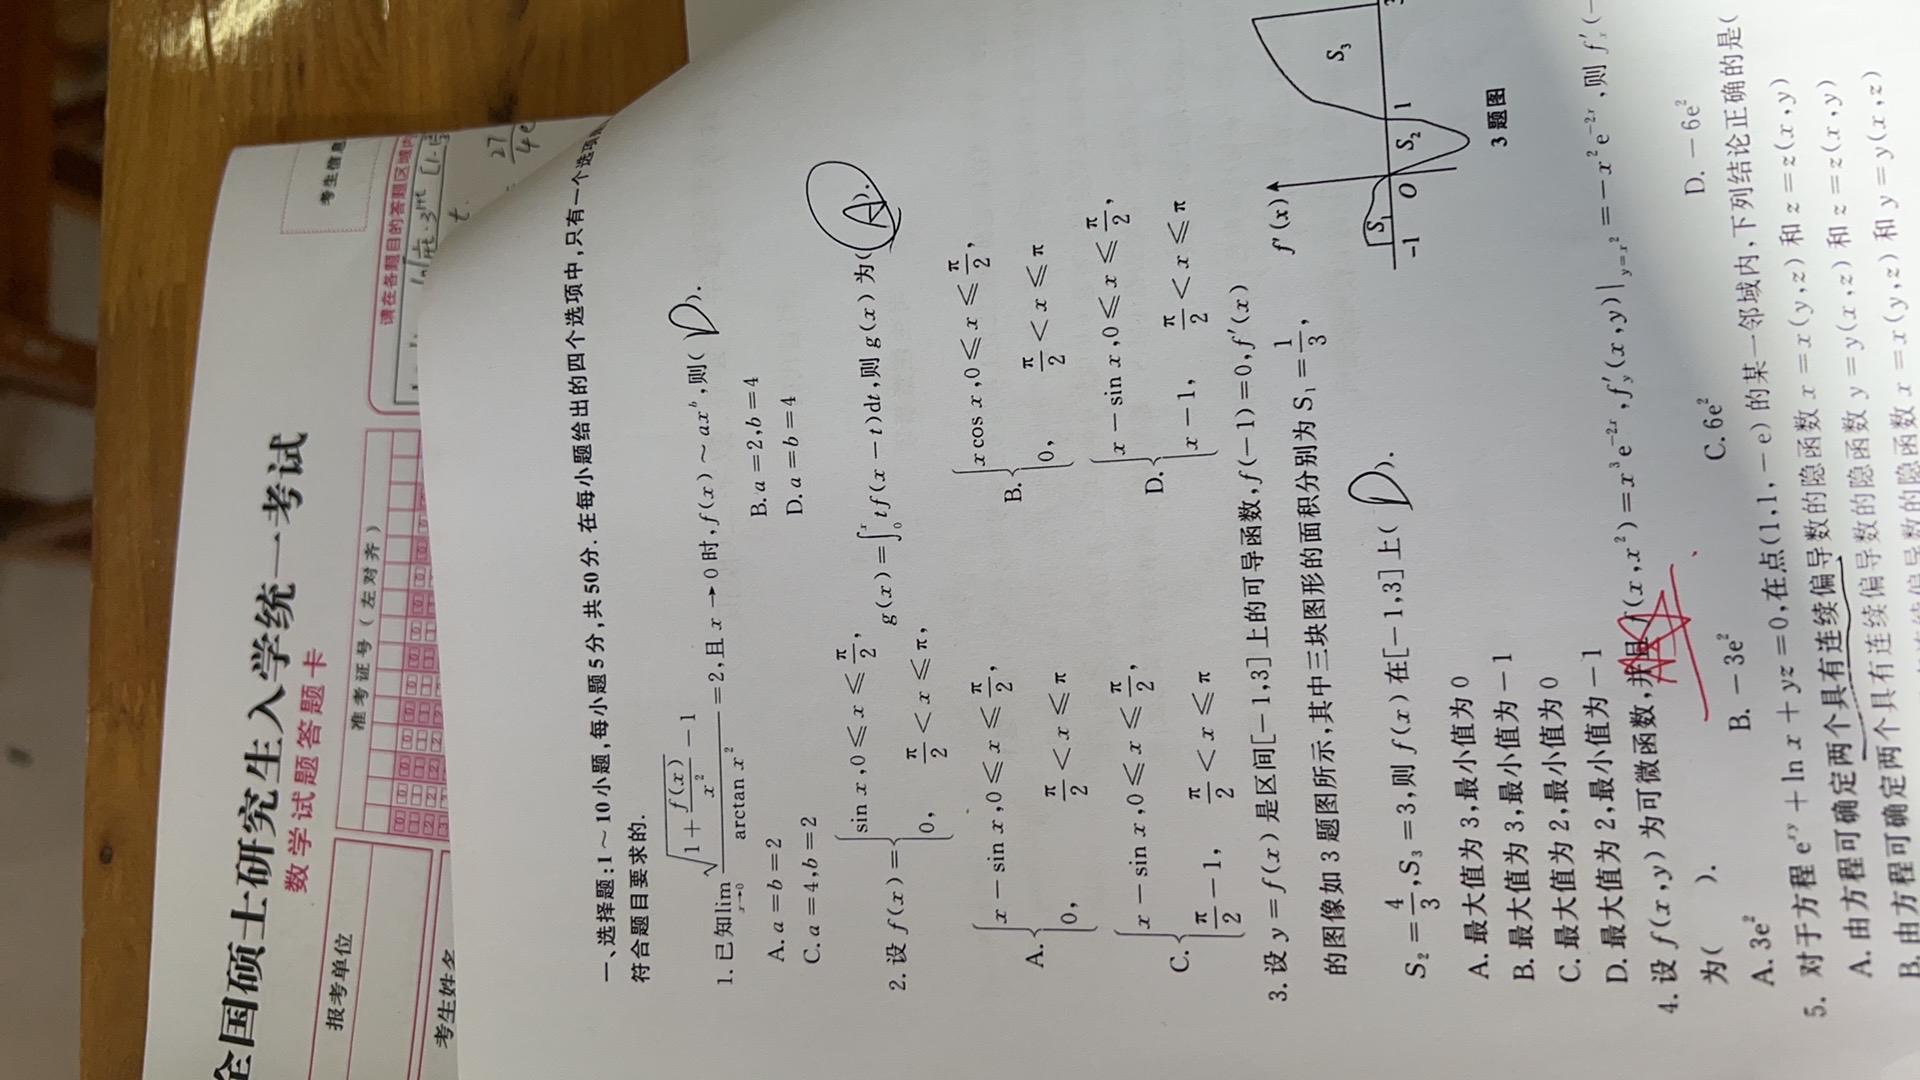 全国硕士研究生入学统一考试
数学试题答题卡
报考单位
准考证号(左对齐)
考生姓名
考生信息
请在各题目的答题区域内
27
一、选择题:1~10小题,每小题5分,共50分.在每小题给出的四个选项中,只有一个选项
符合题目要求的.
1. 已知lim_{x→0} (√(1+f(x)/x²) −1)/(arctan x²) =2,且x→0时,f(x)~ax^b,则( D ).
A. a=b=2 B. a=2,b=4
C. a=4,b=2 D. a=b=4
2. 设f(x)={sin x,0⩽x⩽π/2, 0, π/2<x⩽π, g(x)=∫₀ˣ tf(x−t)dt,则g(x)为( A ).
A. {x−sin x,0⩽x⩽π/2, 0, π/2<x⩽π B. {xcos x,0⩽x⩽π/2, 0, π/2<x⩽π
C. {x−sin x,0⩽x⩽π/2, π/2−1, π/2<x⩽π D. {x−sin x,0⩽x⩽π/2, x−1, π/2<x⩽π
3. 设y=f(x)是区间[−1,3]上的可导函数,f(−1)=0,f′(x)
的图像如3题图所示,其中三块图形的面积分别为S₁=1/3,
S₂=4/3,S₃=3,则f(x)在[−1,3]上( D ).
A. 最大值为3,最小值为0
B. 最大值为3,最小值为−1
C. 最大值为2,最小值为0
D. 最大值为2,最小值为−1
f′(x)
S₁ S₂ S₃
−1 O 1
3题图
4. 设f(x,y)为可微函数,并且f(x,x²)=x³e^{−2x},f′_y(x,y)|_{y=x²}=−x²e^{−2x},则f′_x(−
为( ).
A. 3e² B. −3e² C. 6e² D. −6e²
5. 对于方程e^{xy}+ln x+yz=0,在点(1,1,−e)的某一邻域内,下列结论正确的是(
A. 由方程可确定两个具有连续偏导数的隐函数x=x(y,z)和z=z(x,y)
B. 由方程可确定两个具有连续偏导数的隐函数y=y(x,z)和z=z(x,y)
的隐函数x=x(y,z)和y=y(x,z)